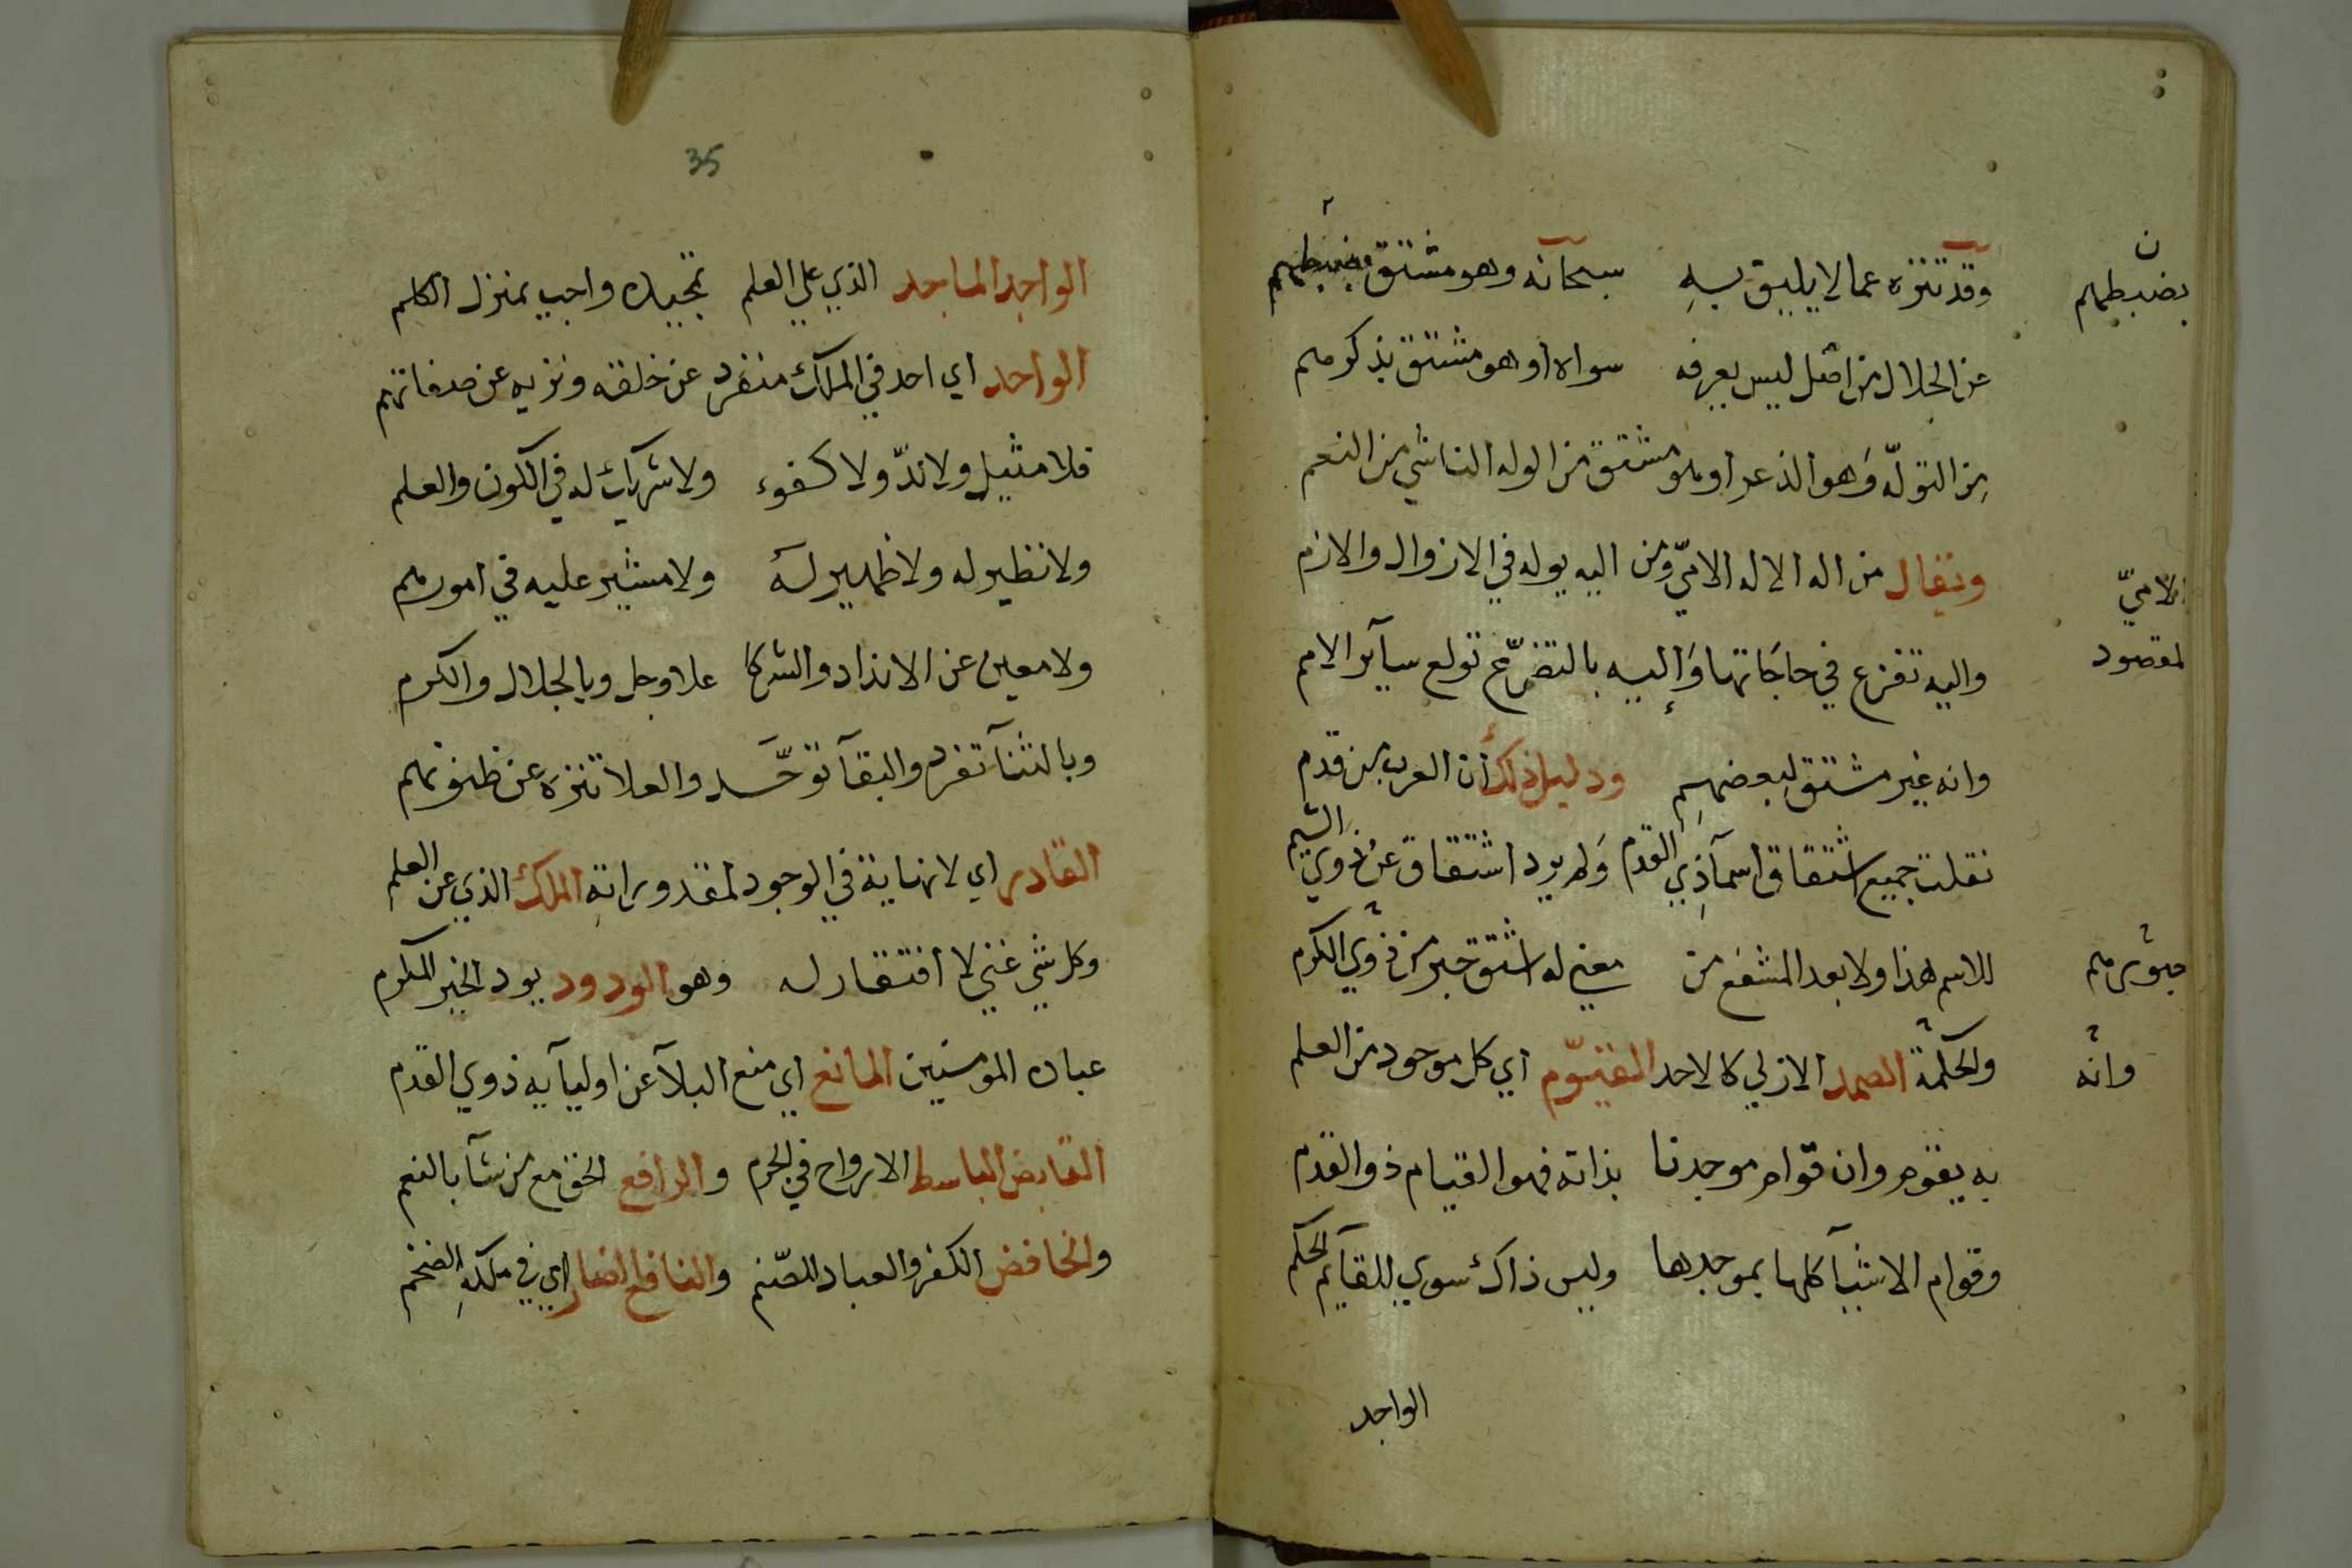 وقد تنزه عما لا يليق به سبحانه وهو مشتق بضبطهم
بضبطهم
عن الجلال من اصل ليس يعرفه سواه او هو مشتق بذكرهم
من التولّه وهو الذعر او هو مشتق من الوله الناشي من النعم
ويقال من اله الاله الاميّ ومن اليه يوله في الازوال والازم
الاميّ
واليه تفزع في حاجاتها واليه بالتضرّع تولع سآير الامم
لمقصود
وانه غير مشتق لبعضهم ودليل ذلك ان العرب من قدم
نقلت جميع اشتقاق اسمآ ذي القدم ولم يرد اشتقاق عن ذوي الشيم
للاسم هذا ولا بعد المشفع من معني له اشتق حبر من ذوي الكرم
ولحكمة الصمد الازلي كالاحد القيّوم اي كل موجود من العلم
وانه
به يقوم وان قوام موجدنا بذاته فهو القيام ذو القدم
وقوام الاشيآ كلها بموجدها وليس ذاك سوي للقآيم الحكم
الواجد
35
الواجد الماجد الذي علي العلم تمجيده واجب بمنزل الكلم
الواحد اي احد في الملك منفرد عن خلقه ونزيه عن صفاتهم
فلا مثيل ولا ندّ ولا كفوء ولا شريك له في الكون والعلم
ولا نظير له ولا ظهير له ولا مشير عليه في امورهم
ولا معين عن الانداد والشركا علا وجل وبالجلال والكرم
وبالثنآ تفرد والبقآ توحّد والعلا تنزه عن ظنونهم
القادر اي لا نهاية في الوجود لمقدوراته الملك الذي عن العلم
وكل شي غني لا افتقار له وهو الودود يود الخير المكرم
عباده المومنين المانع اي منع البلآ عن اوليآيه ذوي القدم
القابض الباسط الارواح في الحرم والرافع الحق مع من شآ بالنعم
والخافض الكفر والعباد للصّنم والنافع الضار اي في ملكه الضخم